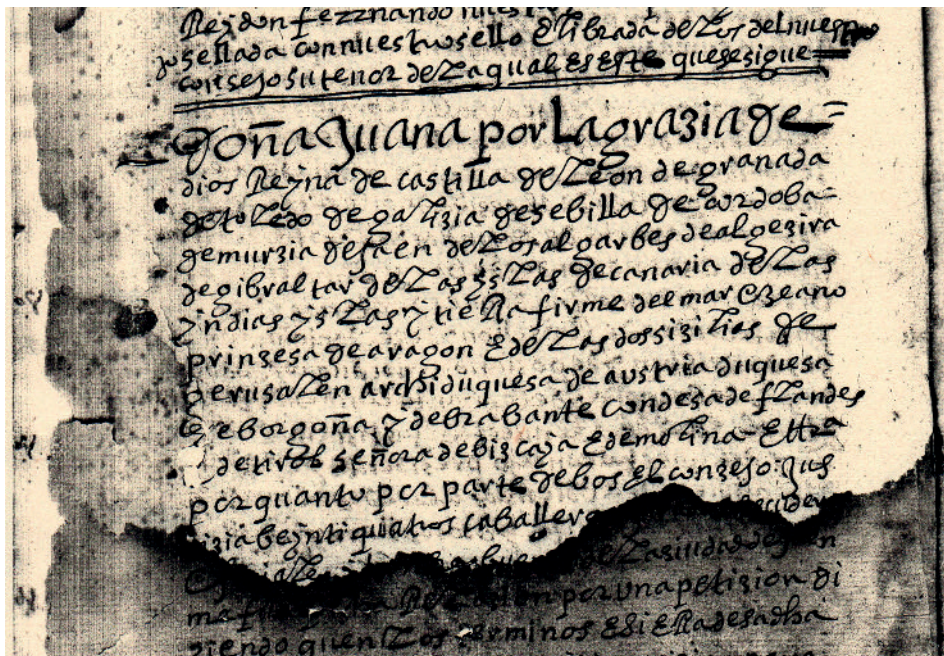 Rey don fezznando nuestro
jo sellada con nuestro sello E librada de Los del nuestro
consejo su tenor de La qual es este que se sigue
doña Juana por La grazia de
dios Reyna de castilla de Leon de granada
de toLedo de galizia de sebilla de cordoba
de murzia de jaen de Los algarbes de algezira
de gibraltar de Las ysLas de canaria de Las
yndias ysLas y tieRa firme del mar ozeano
prinzesa de aragon E de Las dos sizilias de
jerusaLen archiduquesa de austria duquesa
de borgoña y de brabante condesa de fLandes
de tirol señora de bizcaja E de molina Ettra
por quanto por parte de bos el conzejo jus
tizia beyntiquatros caballeros
de La ziudad de jaen
por una petizion di
ziendo que en Los terminos E sieRa desa dha